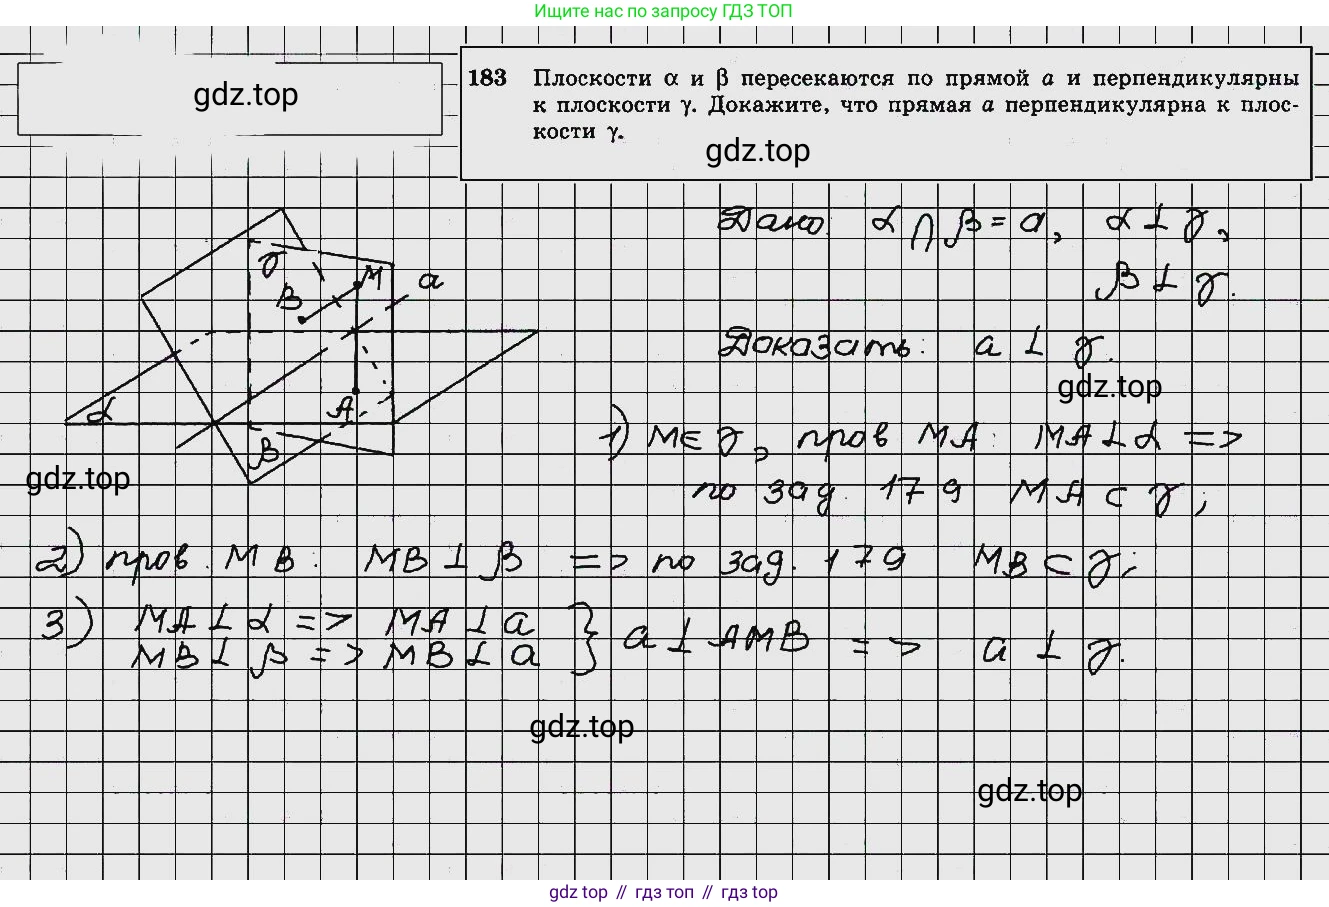 Ищите нас по запросу ГДЗ ТОП
gdz.top
183 Плоскости α и β пересекаются по прямой a и перпендикулярны
к плоскости γ. Докажите, что прямая a перпендикулярна к плос-
кости γ.
gdz.top
Дано: α ∩ β = a, α ⊥ γ,
β ⊥ γ.
Доказать: a ⊥ γ.
gdz.top
γ
M
a
B
α
A
β
gdz.top
1) M ∈ γ, пров MA: MA ⊥ α =>
по зад. 179 MA ⊂ γ;
2) пров. MB: MB ⊥ β => по зад. 179 MB ⊂ γ;
3) MA ⊥ α => MA ⊥ a
MB ⊥ β => MB ⊥ a } a ⊥ AMB => a ⊥ γ.
gdz.top
gdz.top
gdz top // гдз топ // gdz top